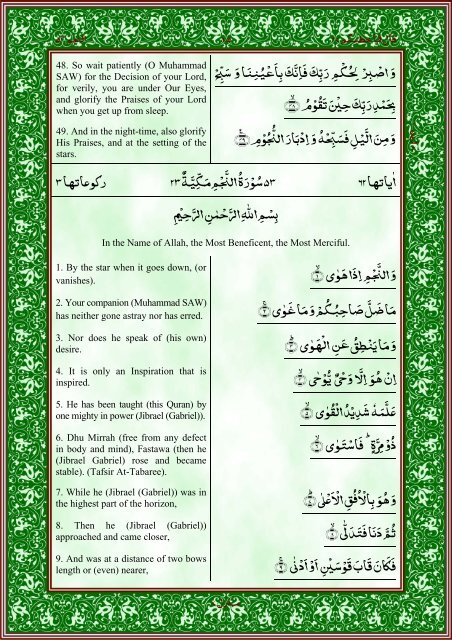 48. So wait patiently (O Muhammad
SAW) for the Decision of your Lord,
for verily, you are under Our Eyes,
and glorify the Praises of your Lord
when you get up from sleep.
وَاصْبِرْ لِحُكْمِ رَبِّكَ فَاِنَّكَ بِاَعْيُنِنَا وَ سَبِّحْ
بِحَمْدِ رَبِّكَ حِيْنَ تَقُوْمُ ۙ﴿۴۸﴾
49. And in the night-time, also glorify
His Praises, and at the setting of the
stars.
وَمِنَ الَّيْلِ فَسَبِّحْهُ وَ اِدْبَارَ النُّجُوْمِ ﴿۴۹﴾
اٰیاتها ٦٢ ٥٣ سُوْرَةُ النَّجْمِ مَكِّيَّةٌ ٢٣ رکوعاتها ٣
بِسْمِ اللّٰهِ الرَّحْمٰنِ الرَّحِيْمِ
In the Name of Allah, the Most Beneficent, the Most Merciful.
1. By the star when it goes down, (or
vanishes).
وَالنَّجْمِ اِذَا هَوٰى ۙ﴿۱﴾
2. Your companion (Muhammad SAW)
has neither gone astray nor has erred.
مَا ضَلَّ صَاحِبُكُمْ وَمَا غَوٰى ۚ﴿۲﴾
3. Nor does he speak of (his own)
desire.
وَمَا يَنْطِقُ عَنِ الْهَوٰى ؕ﴿۳﴾
4. It is only an Inspiration that is
inspired.
اِنْ هُوَ اِلَّا وَحْىٌ يُّوْحٰى ۙ﴿۴﴾
5. He has been taught (this Quran) by
one mighty in power (Jibrael (Gabriel)).
عَلَّمَهٗ شَدِيْدُ الْقُوٰى ۙ﴿۵﴾
6. Dhu Mirrah (free from any defect
in body and mind), Fastawa (then he
(Jibrael Gabriel) rose and became
stable). (Tafsir At-Tabaree).
ذُوْ مِرَّةٍ ؕ فَاسْتَوٰى ۙ﴿۶﴾
7. While he (Jibrael (Gabriel)) was in
the highest part of the horizon,
وَهُوَ بِالْاُفُقِ الْاَعْلٰى ؕ﴿۷﴾
8. Then he (Jibrael (Gabriel))
approached and came closer,
ثُمَّ دَنَا فَتَدَلّٰى ۙ﴿۸﴾
9. And was at a distance of two bows
length or (even) nearer,
فَكَانَ قَابَ قَوْسَيْنِ اَوْ اَدْنٰى ۚ﴿۹﴾